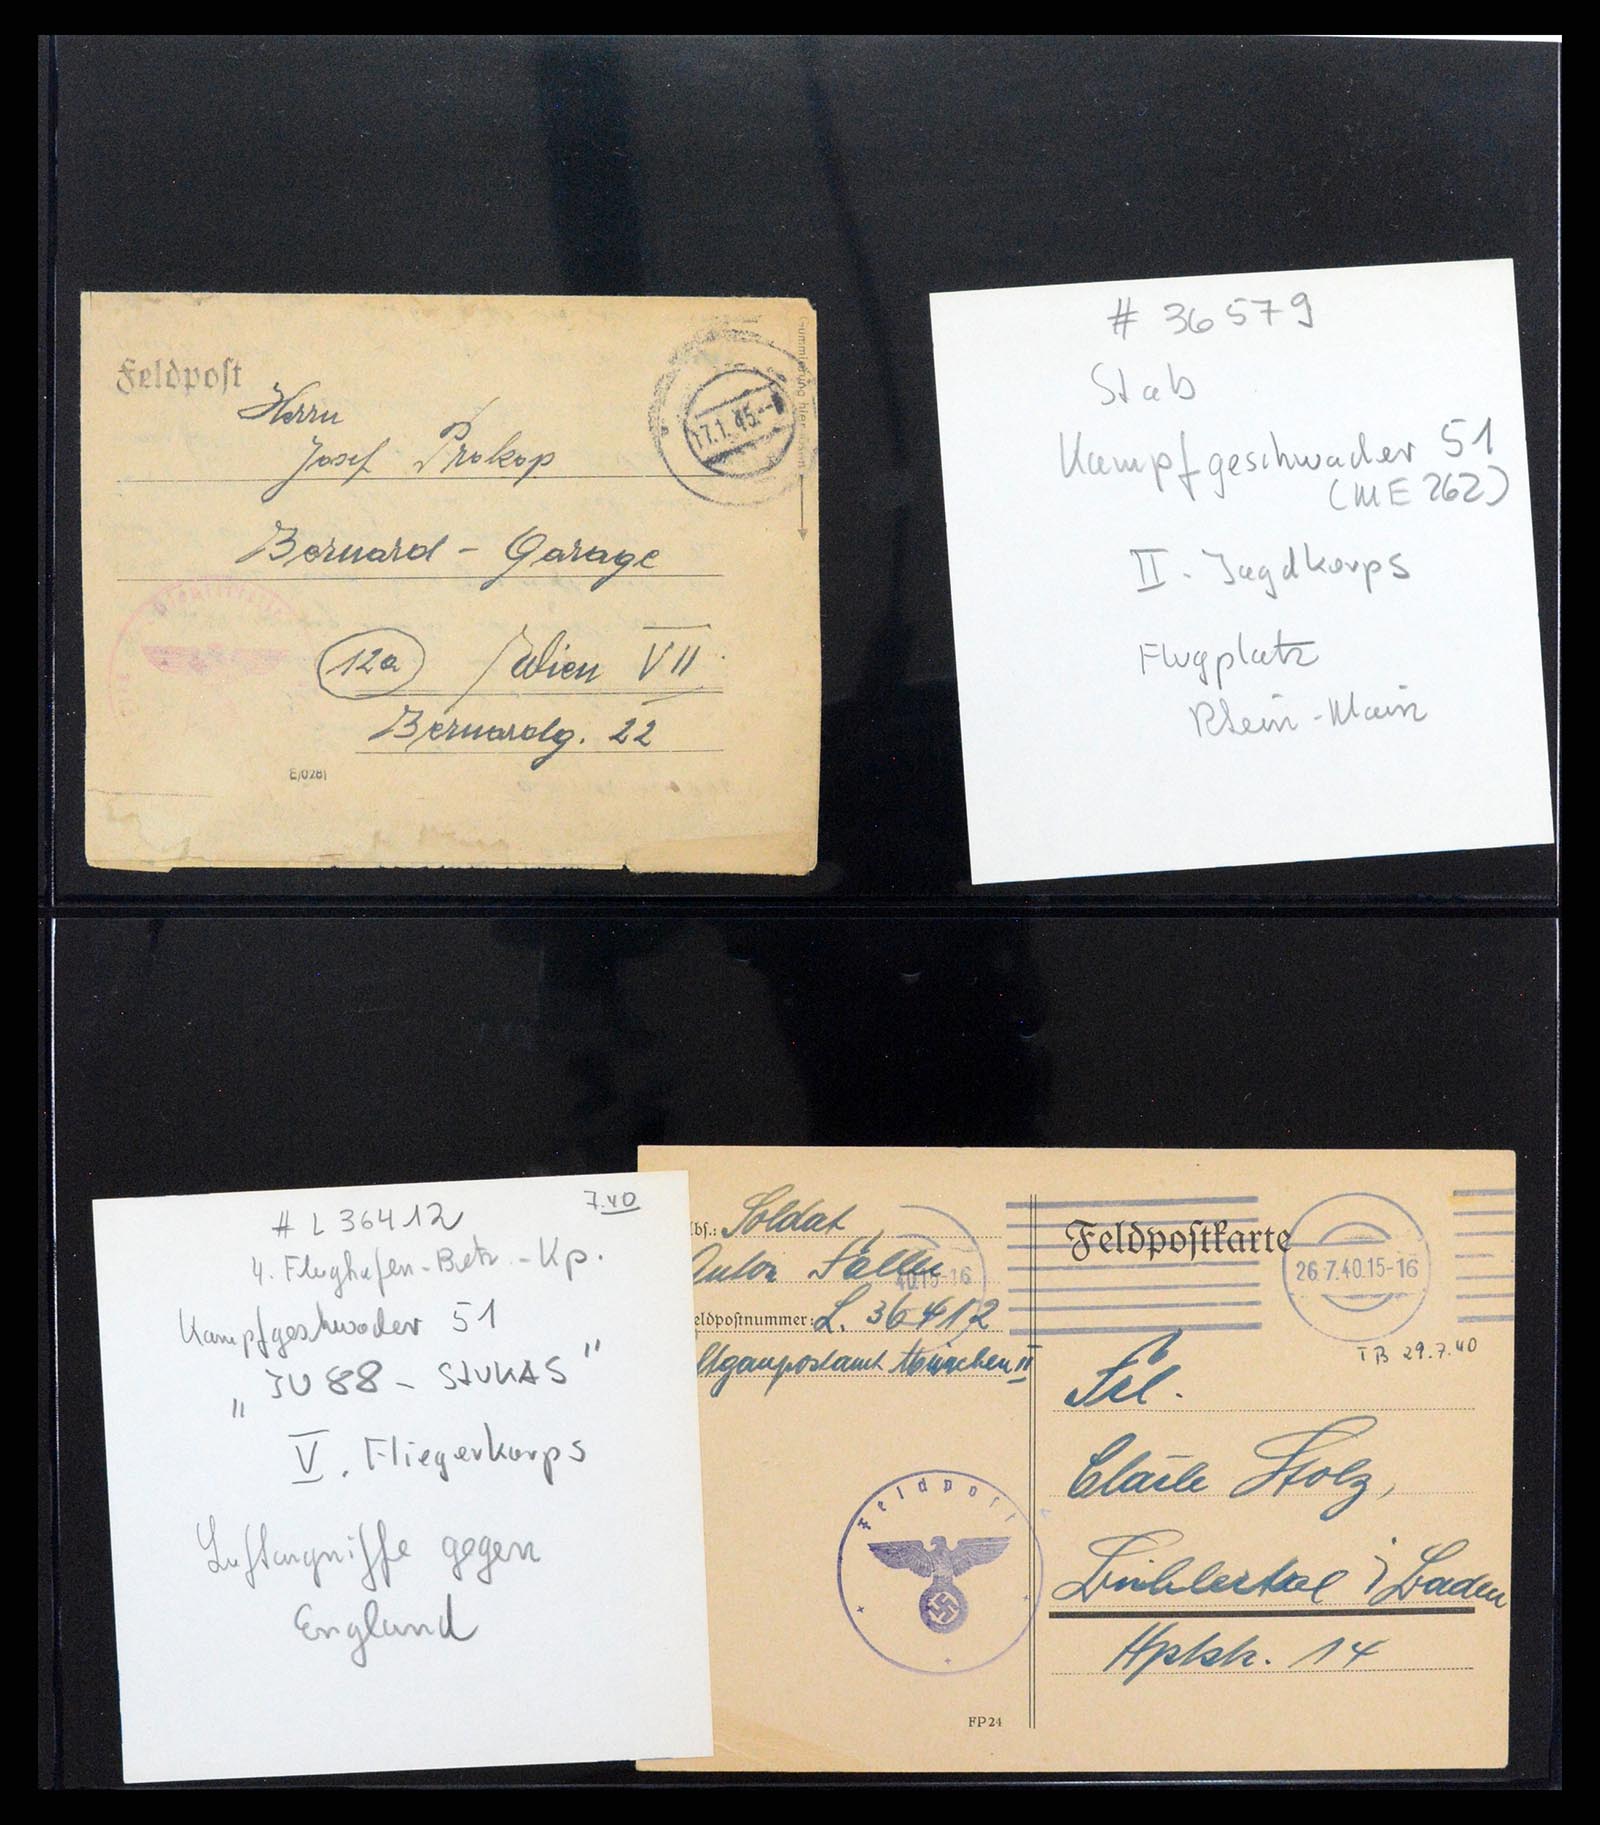 Feldpost
17.1.45.--
Gummierung hier
Herrn
Josef Prokop
Bernard - Garage
12a Wien VII
Bernardg. 22
E/0281
# 36579
Stab
Kampfgeschwader 51
(ME 262)
II. Jagdkorps
Flugplatz
Rhein-Main
# L 36412 7.40
4. Flughafen-Betr.-Kp.
Kampfgeschwader 51
„JU 88 - STUKAS"
V. Fliegerkorps
Luftangriffe gegen
England
Abs.: Soldat
Anton Faller
40.15-16
eldpostnummer: L. 36412
ftgaupostamt München II
Feldpost
FP 24
Feldpostkarte
26.7.40.15-16
TB 29.7.40
Frl.
Cläule Stolz,
Bühlertal i/Baden
Hptstr. 14